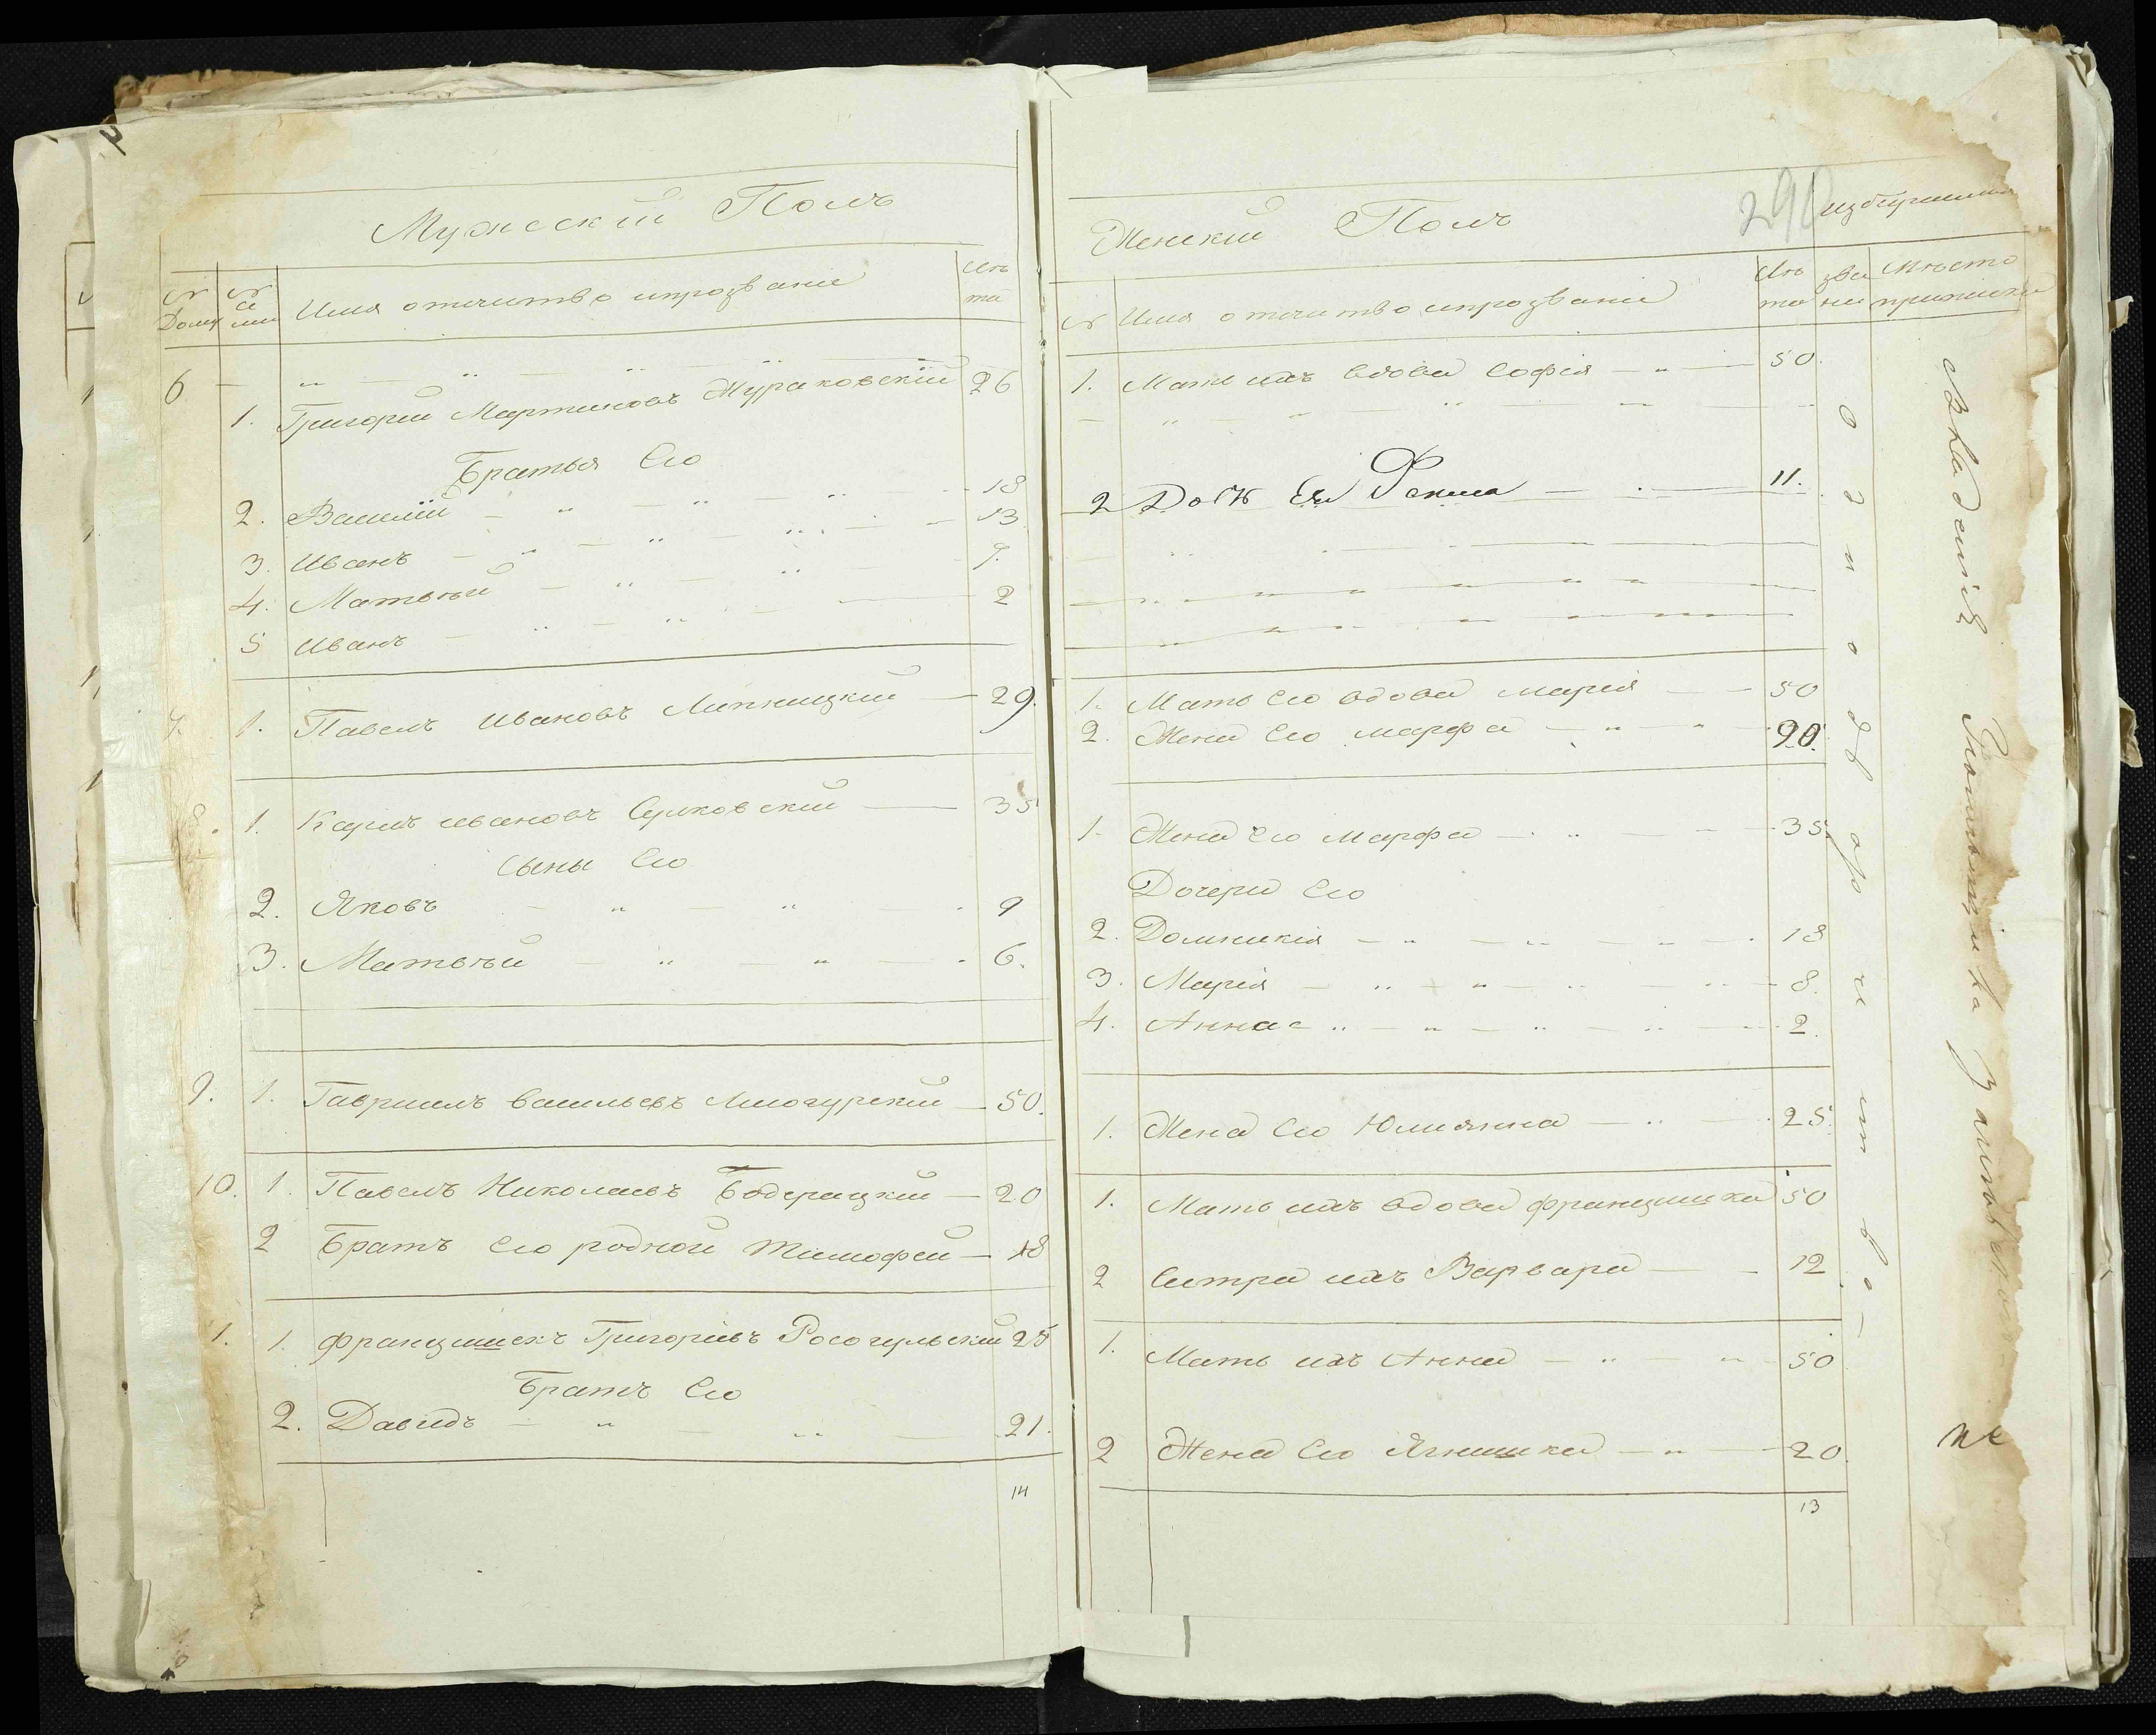 Мужеский Полъ
№ Дому
№ се мьи
Имя отечитво ипрозвание
Лѣ та
6
1. Григорий Мартиновъ Жураковский 26
Братья Его
2. Василий 18
3. Иванъ 13
4. Матьвѣй 9.
5 Иванъ 2
7. 1. Павелъ Ивановъ Липницкий 29.
8. 1. Карпъ Ивановъ Сулковский 35
Сыны Его
2. Яковъ 9
3. Матьвѣй 6.
9. 1. Гавриилъ Васильевъ 50.
10. 1. Павелъ Николаевъ 20
2 Братъ Его родной Тимофей 18
1. 1. Францишекъ Григориевъ 25
Братъ Его
2. Давидъ 21.
14
Женский Полъ
290
№ Имя отечитво ипрозвание
Лѣ та
зва ние
Мѣсто приписки
1. Мать ихъ вдова София 50
2 Дочь Ея 11.
1. Мать Его вдова Мария 50
2. Жена Его Марфа 20.
1. Жена Его Марфа 35.
Дочери Его
2. Домникия 18
3. Мария 8.
4. Анна 2
1. Жена Его Юлиянна 25.
1. Мать ихъ вдова Францишка 50
2 Систра ихъ Варвара 12
1. Мать ихъ Анна 50
2 Жена Его Ягнишка 20.
13
однодворчиство
Владения